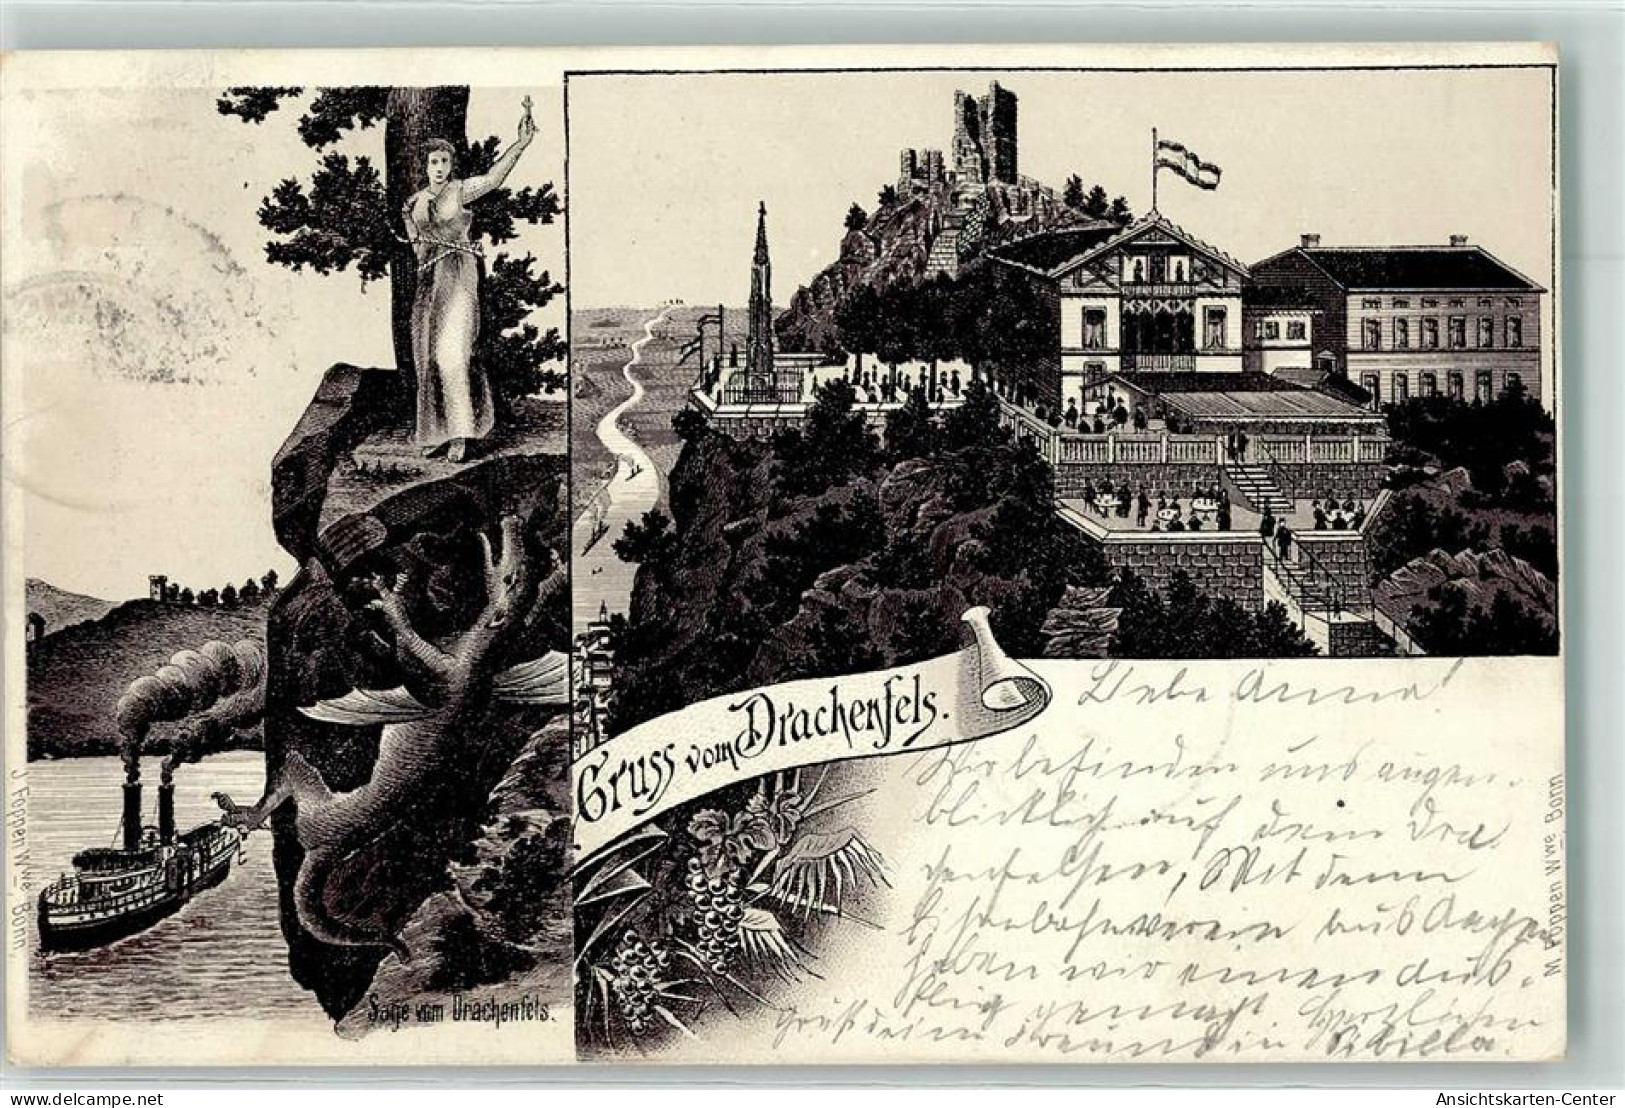 Gruss vom Drachenfels.
Sage vom Drachenfels.
J. Foppen Wwe Bonn.
M. Foppen Wwe Bonn
Liebe Anna!
Wir befinden uns augen-
blicklich auf dem Dra
chenfelsen, Mit dem
Eisenbahnverein aus
haben wir einen Aus-
flug gemacht Herzlichen
Gruß deine Freundin Sibilla.
www.delcampe.net
Ansichtskarten-Center